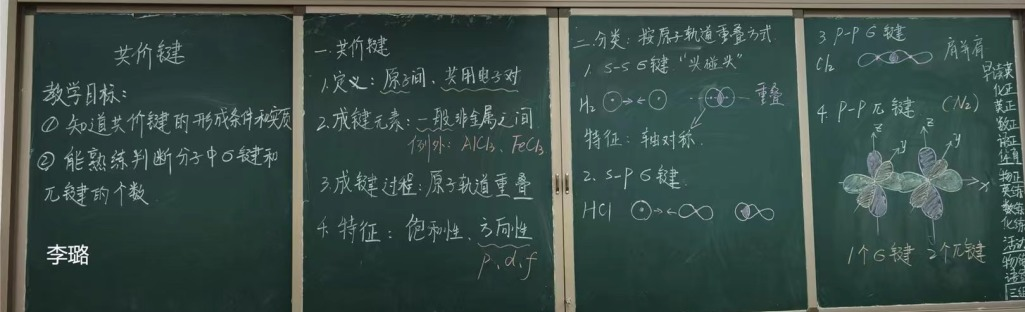 共价键
教学目标：
① 知道共价键的形成条件和实质
② 能熟练判断分子中σ键和
π键的个数
李璐
一.共价键
1.定义：原子间、共用电子对
2.成键元素：一般非金属之间
例外：AlCl₃、FeCl₃
3.成键过程：原子轨道重叠
4.特征：饱和性、方向性
p、d、f
二.分类：按原子轨道重叠方式
1. s-s σ键 "头碰头"
H₂ 重叠
特征：轴对称.
2. s-p σ键
HCl
3. p-p σ键
Cl₂ 肩并肩
4. p-p π键 (N₂)
z z
y y
x
1个σ键 2个π键
早读英
化正
英正
数正
物正
英练
数练
化练
活动
三组